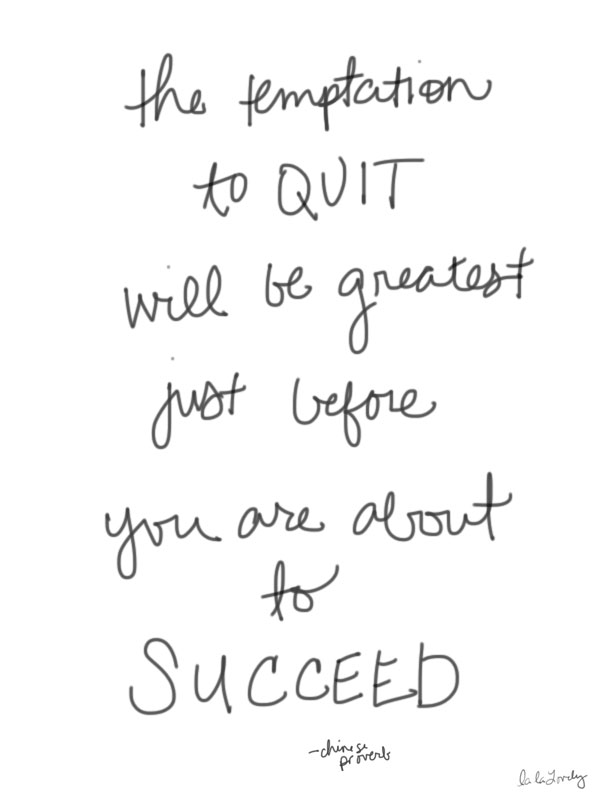 the temptation
to QUIT
will be greatest
just before
you are about
to
SUCCEED
-chinese
proverb
la la Lovely